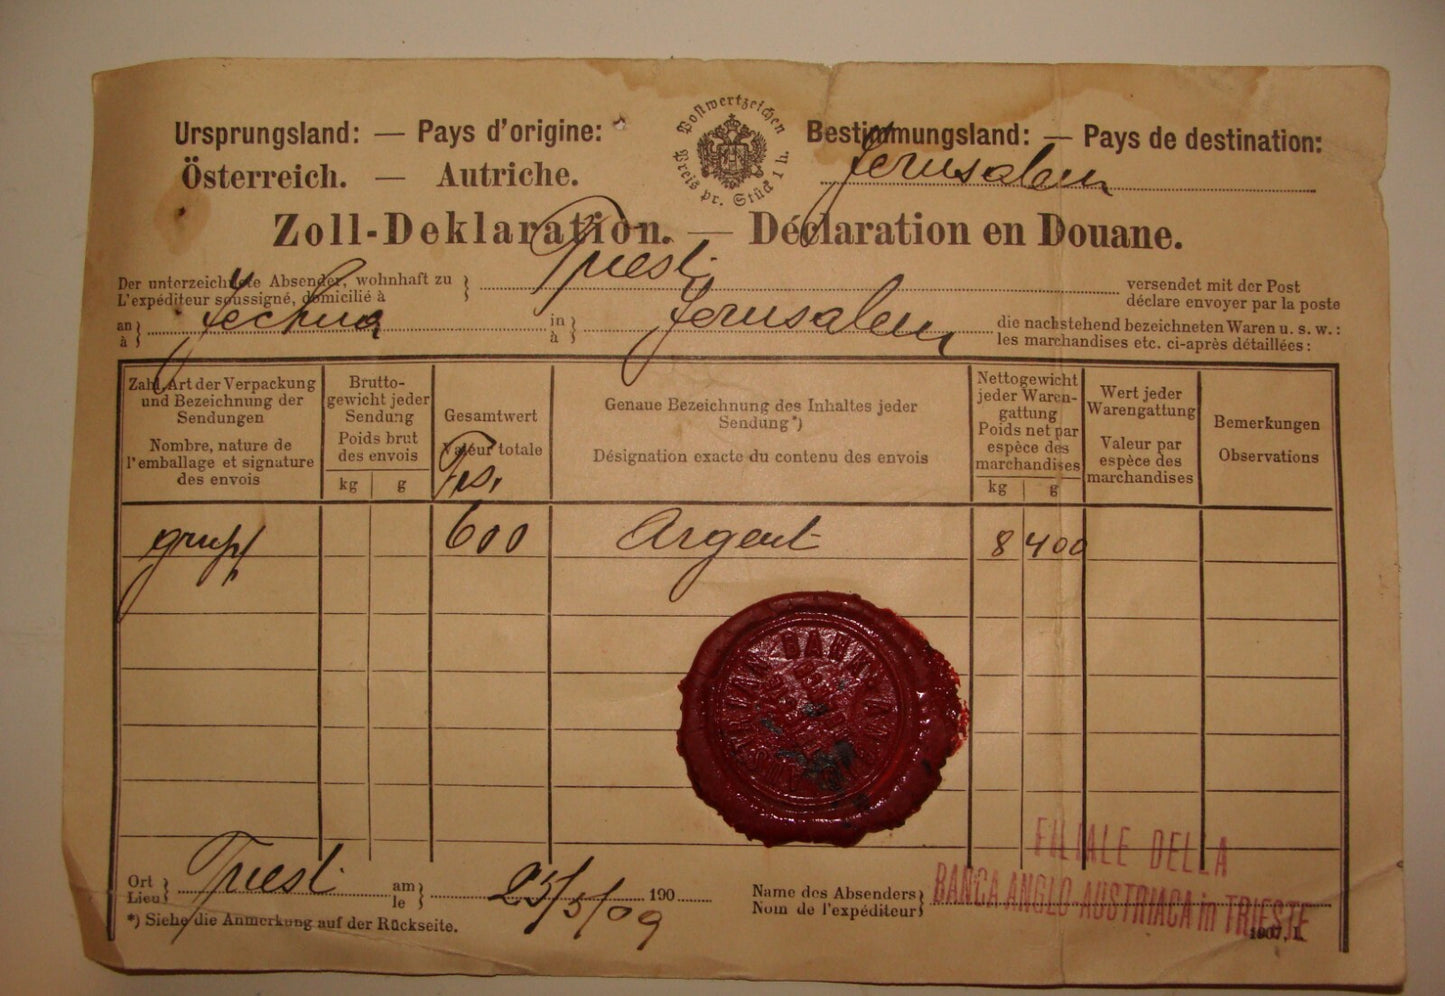 Ursprungsland: — Pays d'origine:
Österreich. — Autriche.
Postwertzeichen
Preis pr. Stück 1 h.
Bestimmungsland: — Pays de destination:
Jerusalem
Zoll-Deklaration. — Déclaration en Douane.
Der unterzeichnete Absender, wohnhaft zu
L'expéditeur soussigné, domicilié à
Triest
versendet mit der Post
déclare envoyer par la poste
an
à
in
à
Jerusalem
die nachstehend bezeichneten Waren u. s. w.:
les marchandises etc. ci-après détaillées:
Zahl, Art der Verpackung
und Bezeichnung der
Sendungen
Nombre, nature de
l'emballage et signature
des envois
Brutto-
gewicht jeder
Sendung
Poids brut
des envois
kg g
Gesamtwert
Valeur totale
Frs.
Genaue Bezeichnung des Inhaltes jeder
Sendung*)
Désignation exacte du contenu des envois
Nettogewicht
jeder Waren-
gattung
Poids net par
espèce des
marchandises
kg g
Wert jeder
Warengattung
Valeur par
espèce des
marchandises
Bemerkungen
Observations
600 Argent 8 400
BANK
FILIALE DELLA
BANCA ANGLO AUSTRIACA in TRIESTE
Ort
Lieu
Triest
am
le
23/5/09
190
Name des Absenders
Nom de l'expéditeur
*) Siehe die Anmerkung auf der Rückseite.
1907. I.